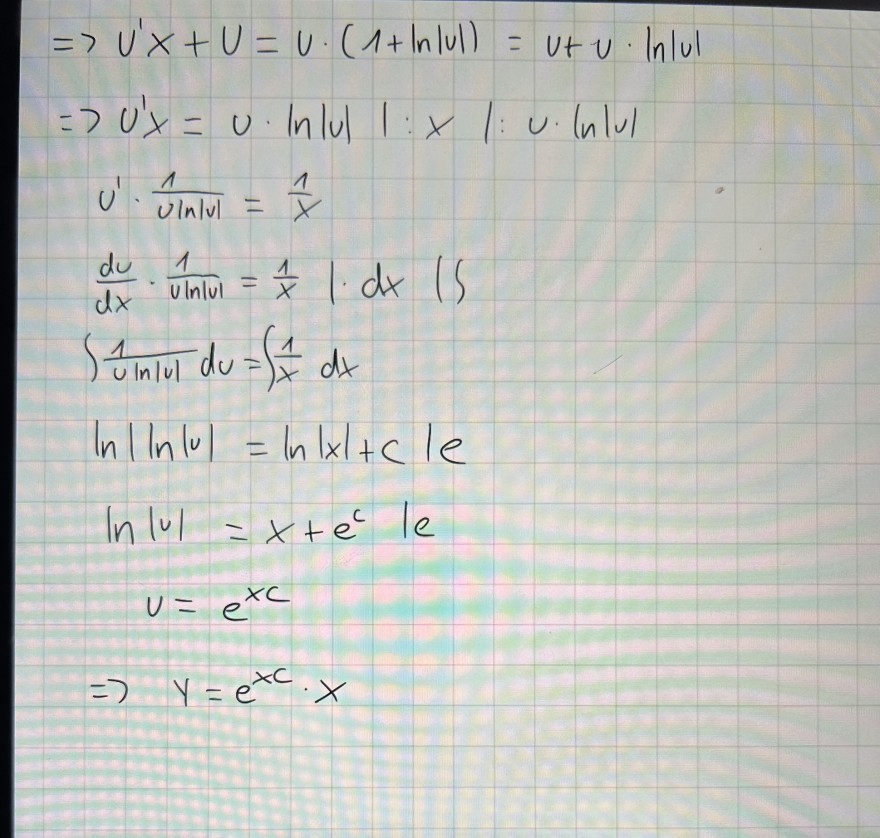 => u'x + u = u · (1 + ln|u|) = u + u · ln|u|
=> u'x = u · ln|u| | : x | : u · ln|u|
u' · 1/(u ln|u|) = 1/x
du/dx · 1/(u ln|u|) = 1/x | · dx | ∫
∫ 1/(u ln|u|) du = ∫ 1/x dx
ln | ln |u| = ln |x| + c | e
ln |u| = x + e^c | e
u = e^xc
=> y = e^xc · x